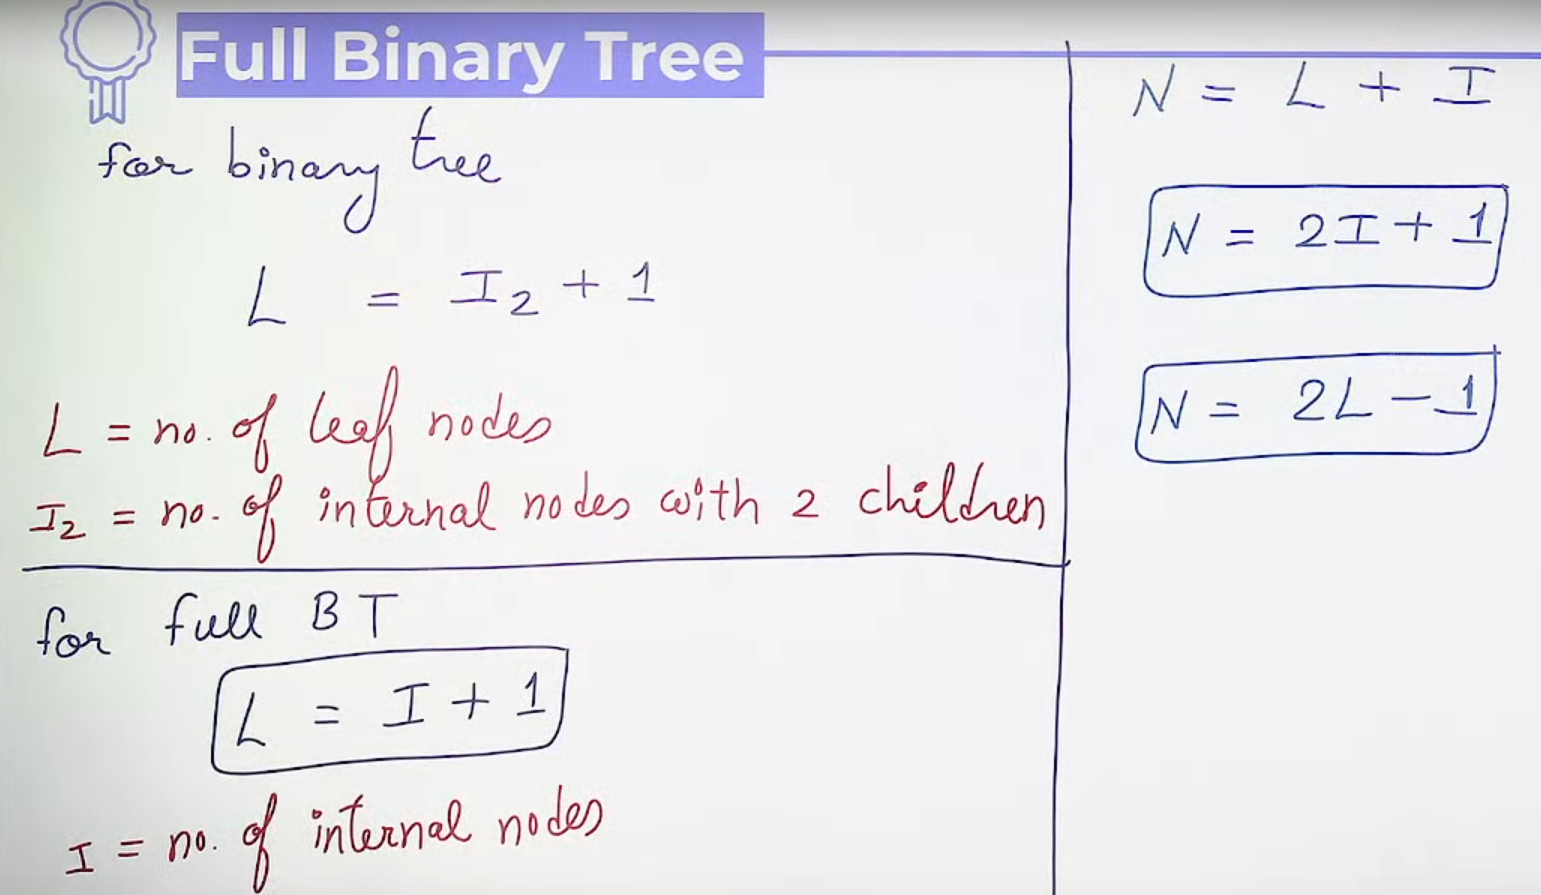 Full Binary Tree
for binary tree
L = I₂ + 1
L = no. of leaf nodes
I₂ = no. of internal nodes with 2 children
for full BT
L = I + 1
I = no. of internal nodes
N = L + I
N = 2I + 1
N = 2L - 1